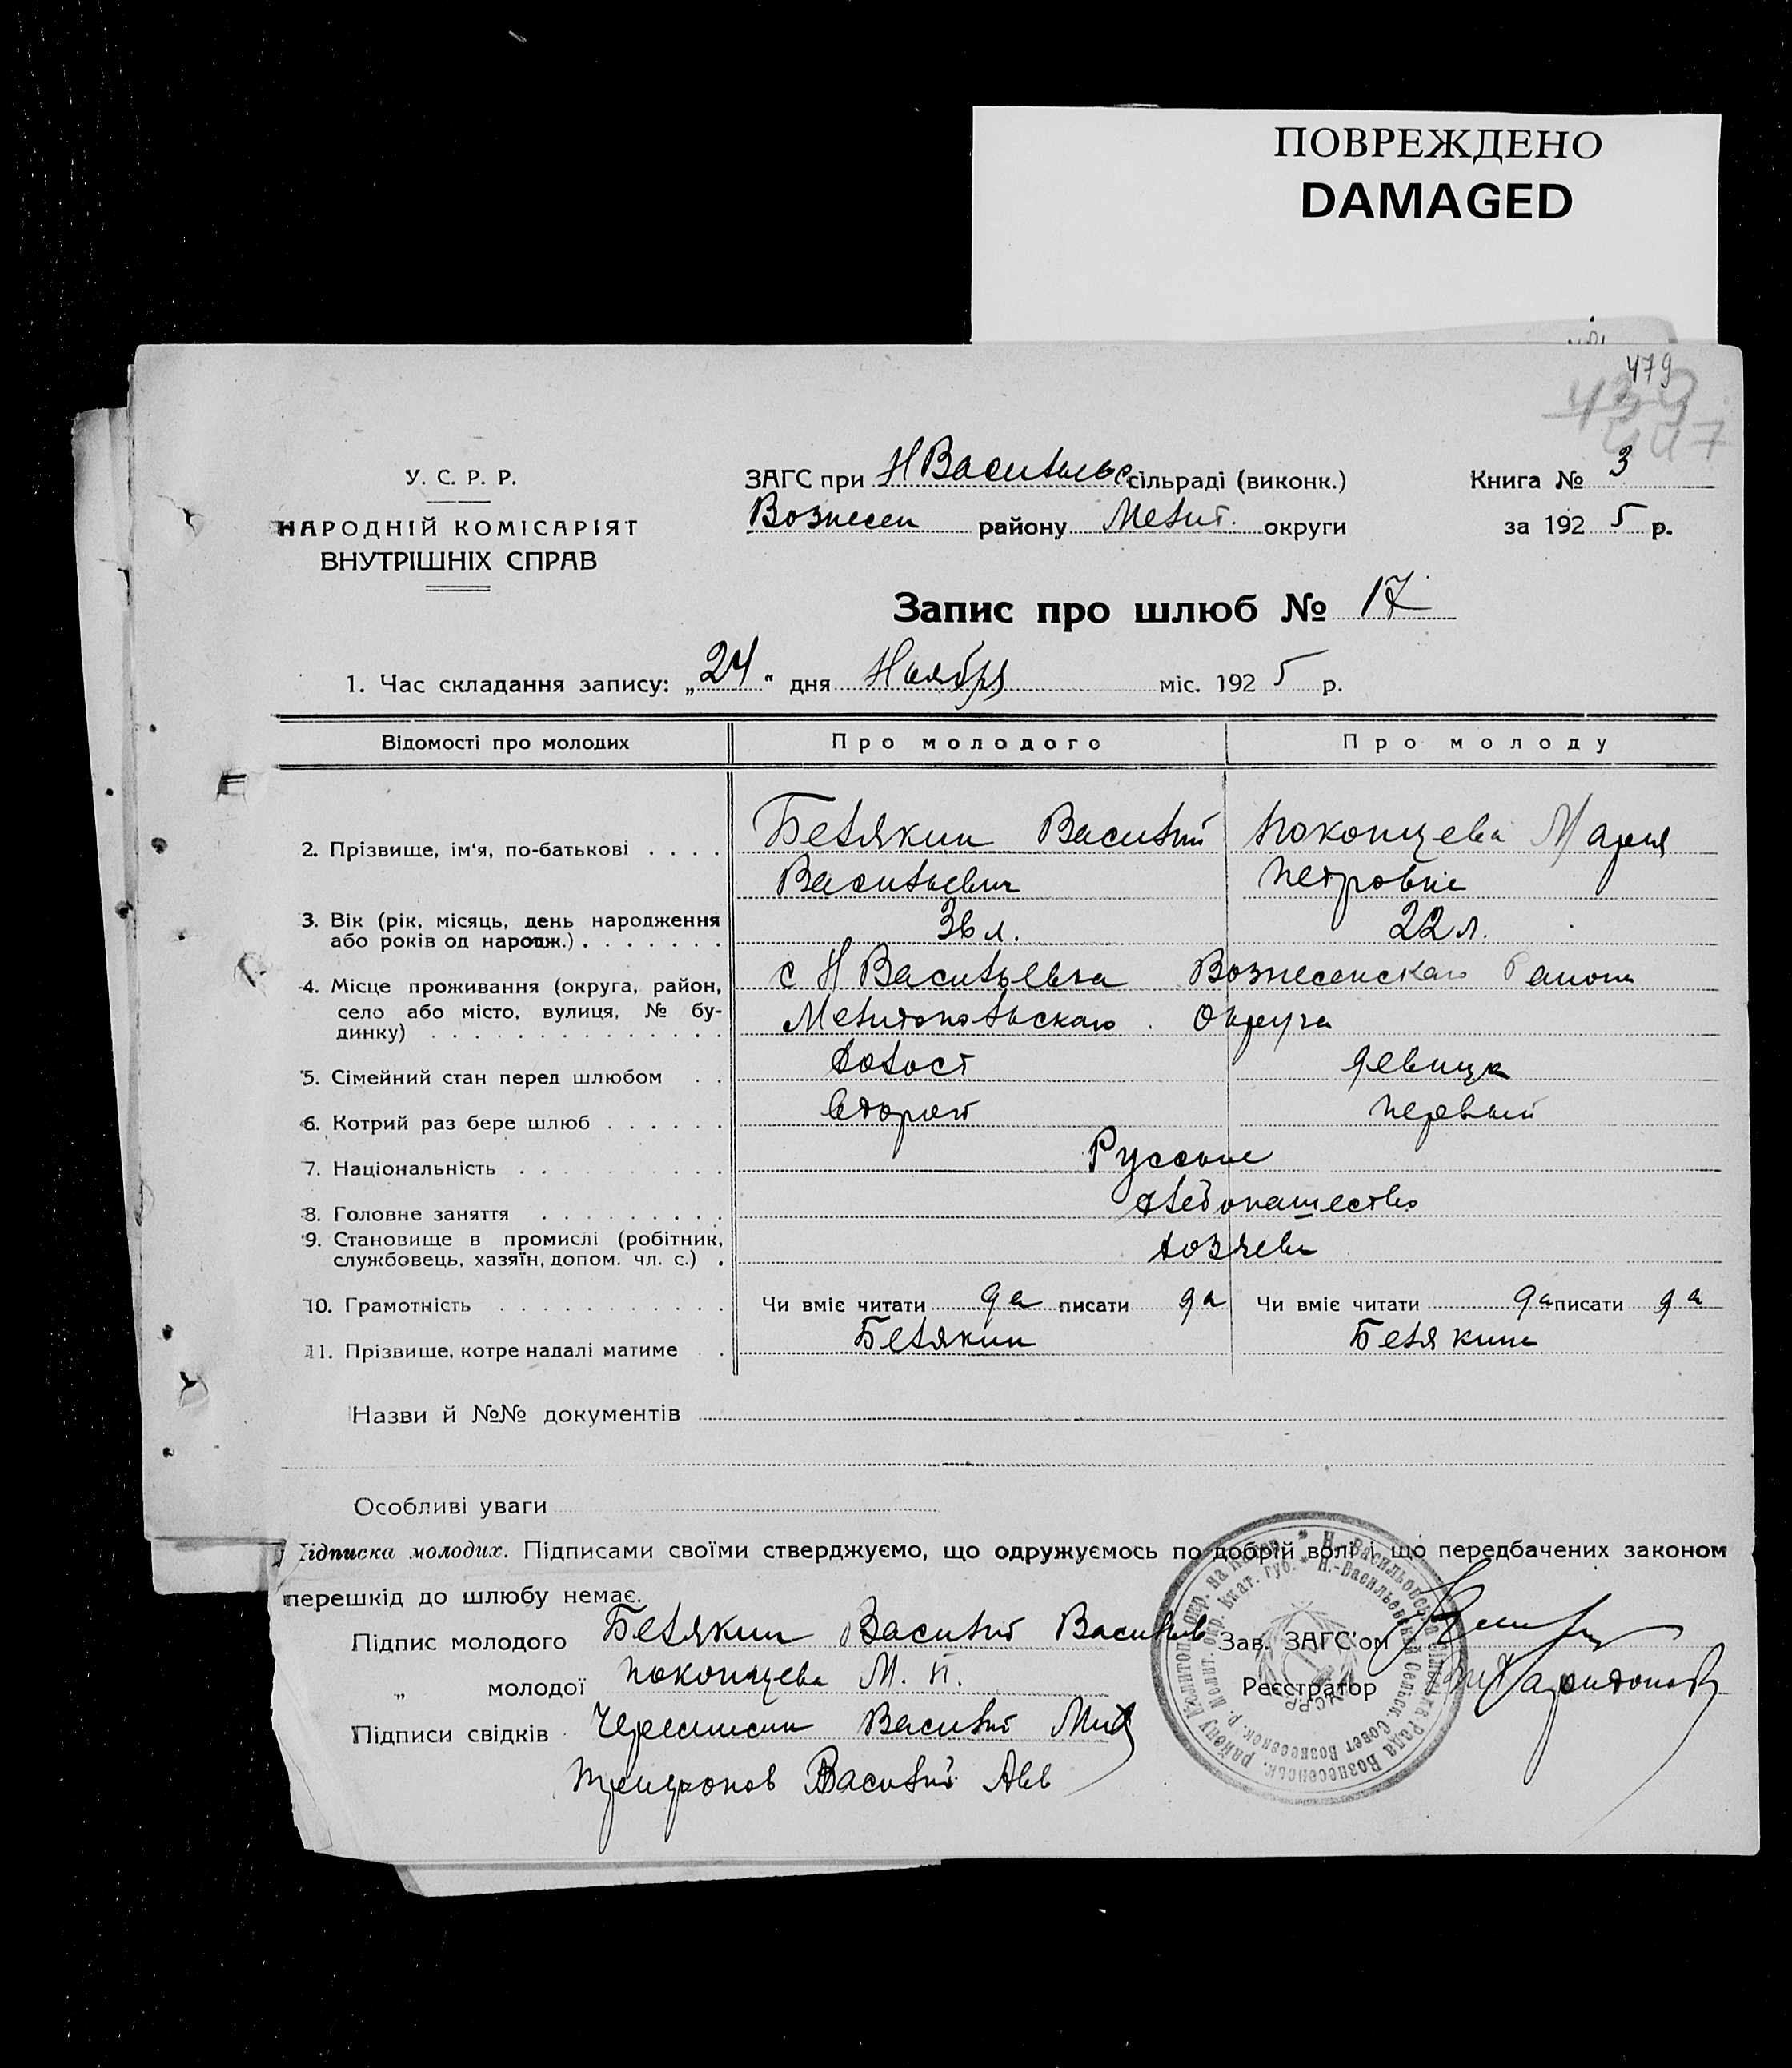 ПОВРЕЖДЕНО
DAMAGED
479
У. С. Р. Р.
НАРОДНІЙ КОМІСАРІЯТ
ВНУТРІШНІХ СПРАВ
ЗАГС при НВасильевс сільраді (виконк.)
Вознесен району Мелит. округи
Книга № 3
за 1925 р.
Запис про шлюб № 17
1. Час складання запису: „24" дня Ноября міс. 1925 р.
Відомості про молодих Про молодого Про молоду
2. Прізвище, ім'я, по-батькові . . . . Белякин Василий Поконцева Мария
Васильевич Петровна
3. Вік (рік, місяць, день народження
або років од народж.) . . . . . . . 36 л. 22 л.
4. Місце проживання (округа, район,
село або місто, вулиця, № бу-
динку) . . . . . . . . . . . . . .
с Н Васильевка Вознесенскаго Района
Мелитопольскаго Округа
5. Сімейний стан перед шлюбом . . холост девица
6. Котрий раз бере шлюб . . . . . . второй первый
7. Національність . . . . . . . . . . Русские
8. Головне заняття . . . . . . . . . хлебопашество
9. Становище в промислі (робітник,
службовець, хазяїн, допом. чл. с.) . хозяева
10. Грамотність . . . . . . . . . . . Чи вміє читати да писати да Чи вміє читати да писати да
11. Прізвище, котре надалі матиме . . Белякин Белякина
Назви й №№ документів
Особливі уваги
Підписка молодих. Підписами своїми стверджуємо, що одружуємось по добрій волі і що передбачених законом
перешкід до шлюбу немає.
Підпис молодого Белякин Василий Васильев Зав. ЗАГС'ом
„ молодої Поконцева М. П. Реєстратор Харитонов
Підписи свідків Черемисин Василий Мих
Трифонов Василий Авв